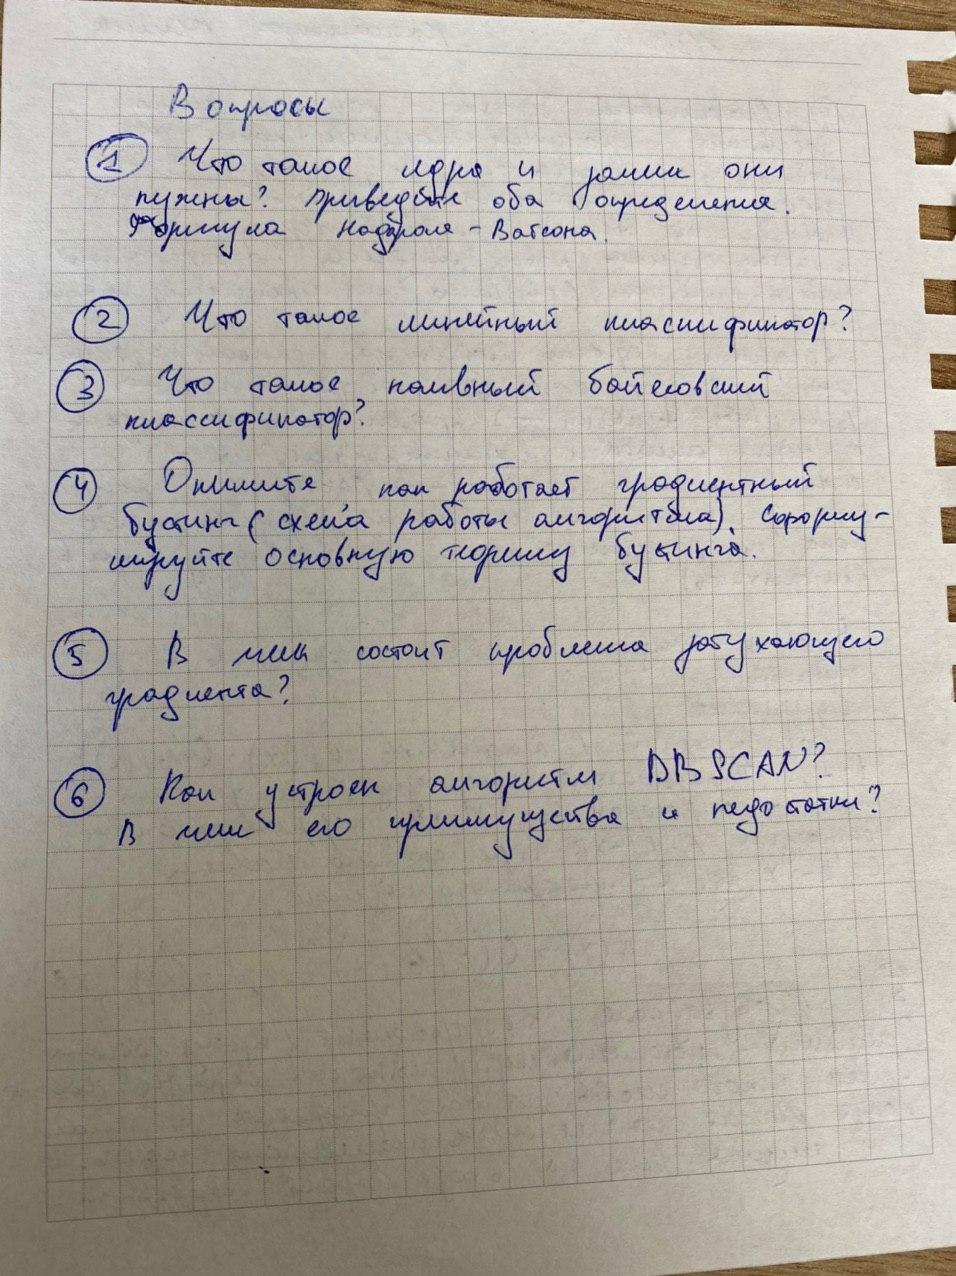 Вопросы
① Что такое ядра и зачем они
нужны? Приведите оба определения.
Формула Надарая-Ватсона.
② Что такое линейный классификатор?
③ Что такое наивный байесовский
классификатор?
④ Опишите как работает градиентный
бустинг (схема работы алгоритма). Сформу-
лируйте основную теорему бустинга.
⑤ В чем состоит проблема затухающего
градиента?
⑥ Как устроен алгоритм DBSCAN?
В чем его преимущества и недостатки?